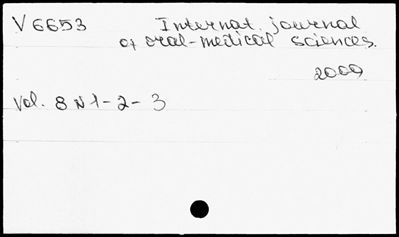 V 6653 Internat. journal
of oral-medical sciences.
2009
Vol. 8 N 1-2-3